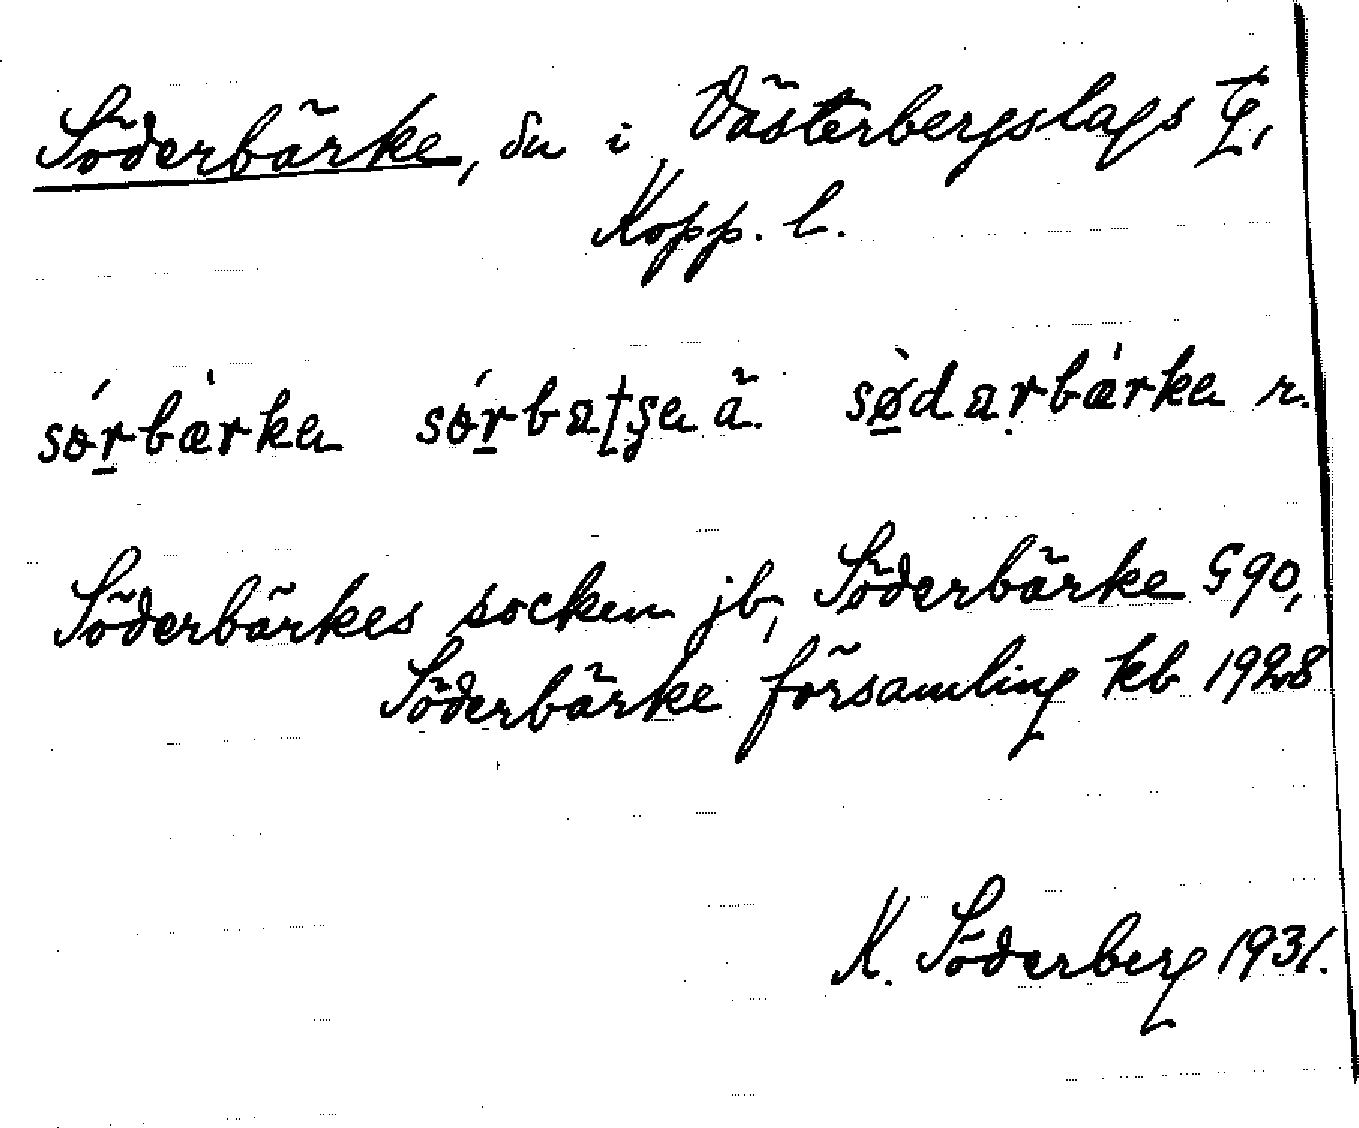 Söderbärke, sn i Västerbergslags tg,
Kopp. l.
sórbæ̀rka sórbaʈʂa ä. sø̀darbæ̀rka r.
Söderbärkes socken jb, Söderbärke G90,
Söderbärke församling kb 1928
K. Söderberg 1931.